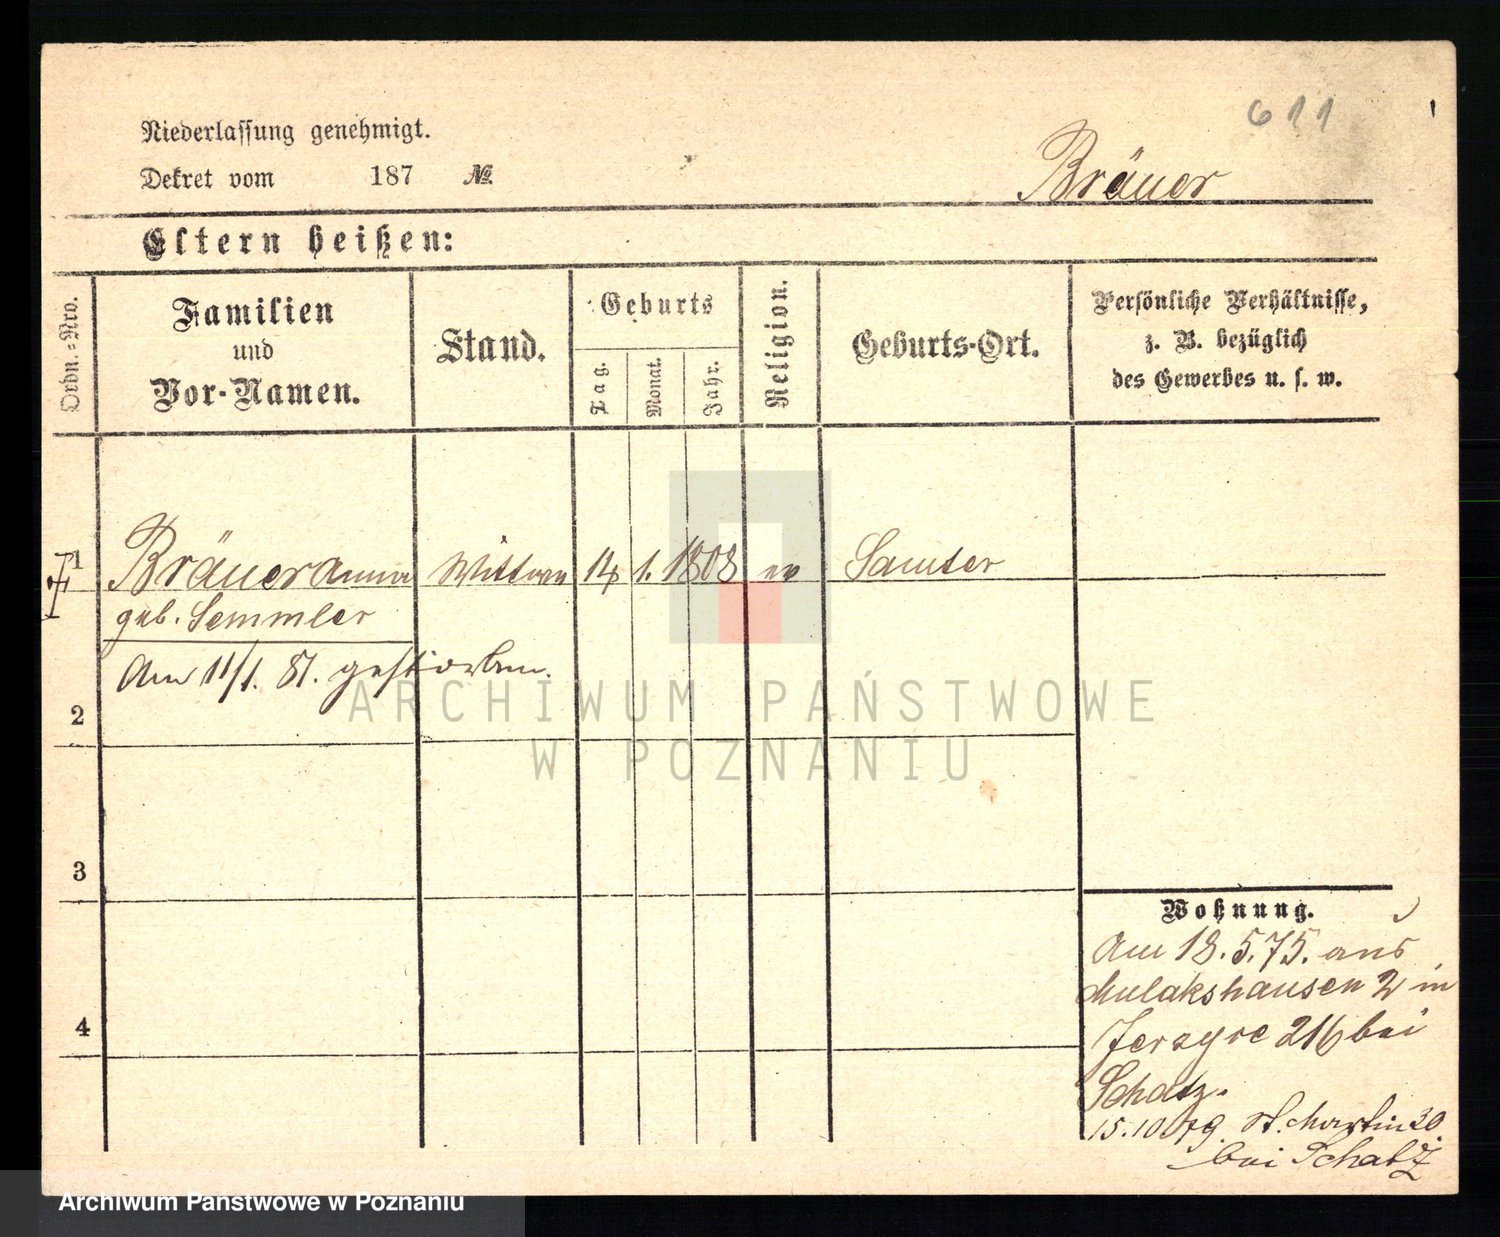 611
Niederlassung genehmigt.
Dekret vom 187 №.
Bräuer
Eltern heißen:
Ordn.-Nro.
Familien
und
Vor-Namen.
Stand.
Geburts
Tag.
Monat.
Jahr.
Religion.
Geburts-Ort.
Persönliche Verhältnisse,
z. B. bezüglich
des Gewerbes u. s. w.
1 Bräuer Anna Wittwe 14 1. 1808 ev Samter
geb. Semmler
Am 11/1. 81. gestorben.
2
3
4
Wohnung.
Am 18.5.75. aus
Mulakshausen 2 in
Jerzyce 216 bei
Schatz.
15.10.79. St. Martin 30
bei Schatz
ARCHIWUM PAŃSTWOWE
W POZNANIU
Archiwum Państwowe w Poznaniu